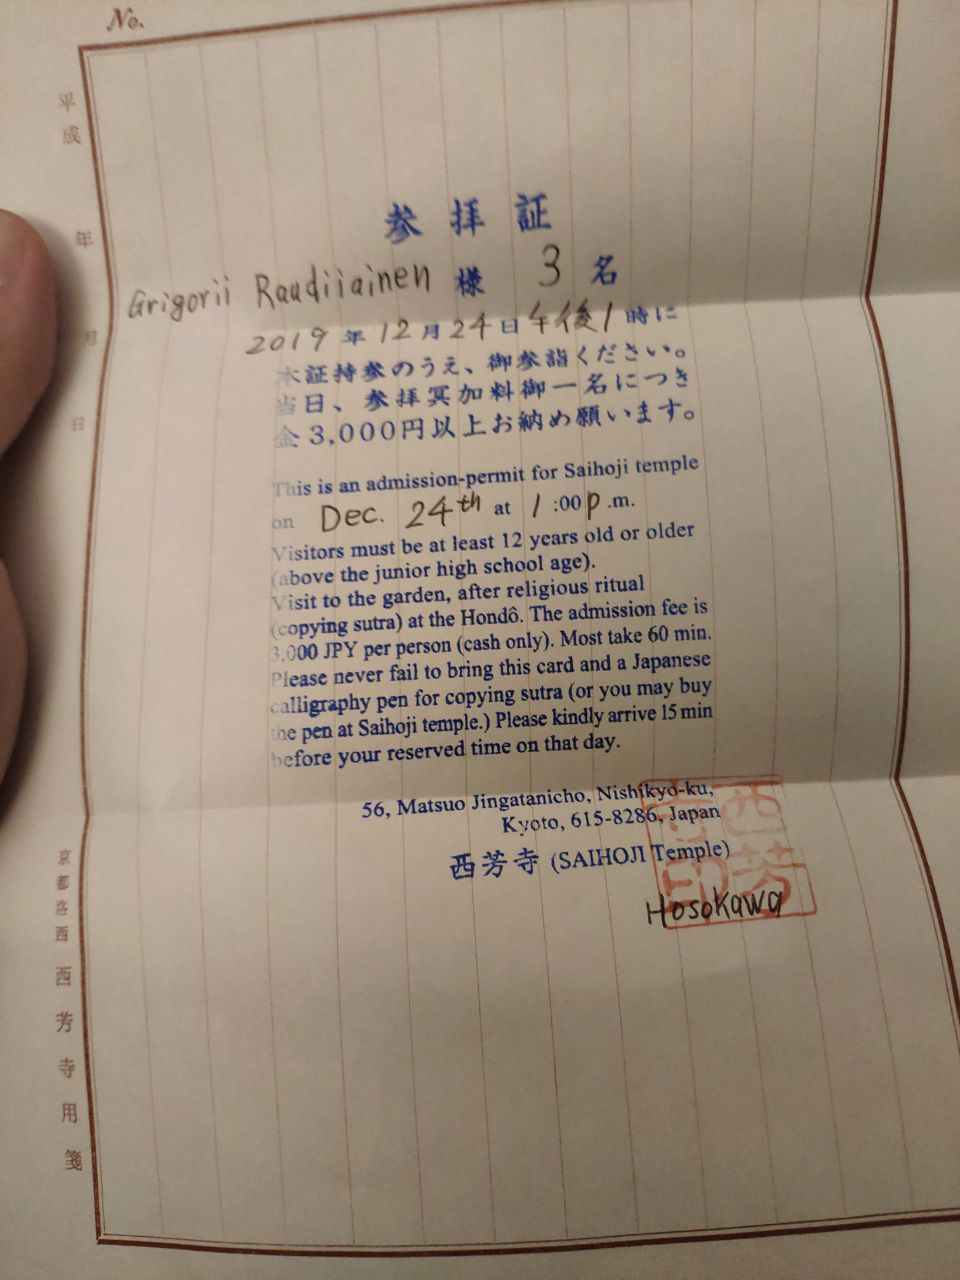 No.
平成 年 月 日
参拝証
Grigorii Raudiiainen 様 3 名
2019 年 12 月 24 日 午後 1 時に
本証持参のうえ、御参詣ください。
当日、参拝冥加料御一名につき
金3,000円以上お納め願います。
This is an admission-permit for Saihoji temple
on Dec. 24th at 1 :00 p .m.
Visitors must be at least 12 years old or older
(above the junior high school age).
Visit to the garden, after religious ritual
(copying sutra) at the Hondô. The admission fee is
3,000 JPY per person (cash only). Most take 60 min.
Please never fail to bring this card and a Japanese
calligraphy pen for copying sutra (or you may buy
the pen at Saihoji temple.) Please kindly arrive 15 min
before your reserved time on that day.
56, Matsuo Jingatanicho, Nishikyo-ku,
Kyoto, 615-8286, Japan
西芳寺 (SAIHOJI Temple)
西芳寺印
Hosokawa
京都洛西 西芳寺用箋